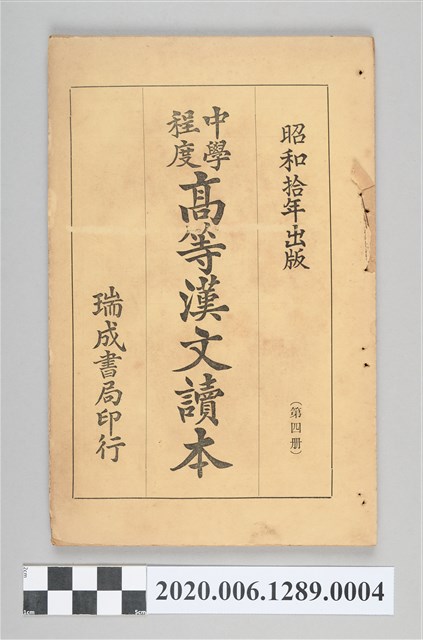 昭和拾年出版
(第四册)
中學程度
高等漢文讀本
瑞成書局印行
2cm
1cm
5cm
2020.006.1289.0004